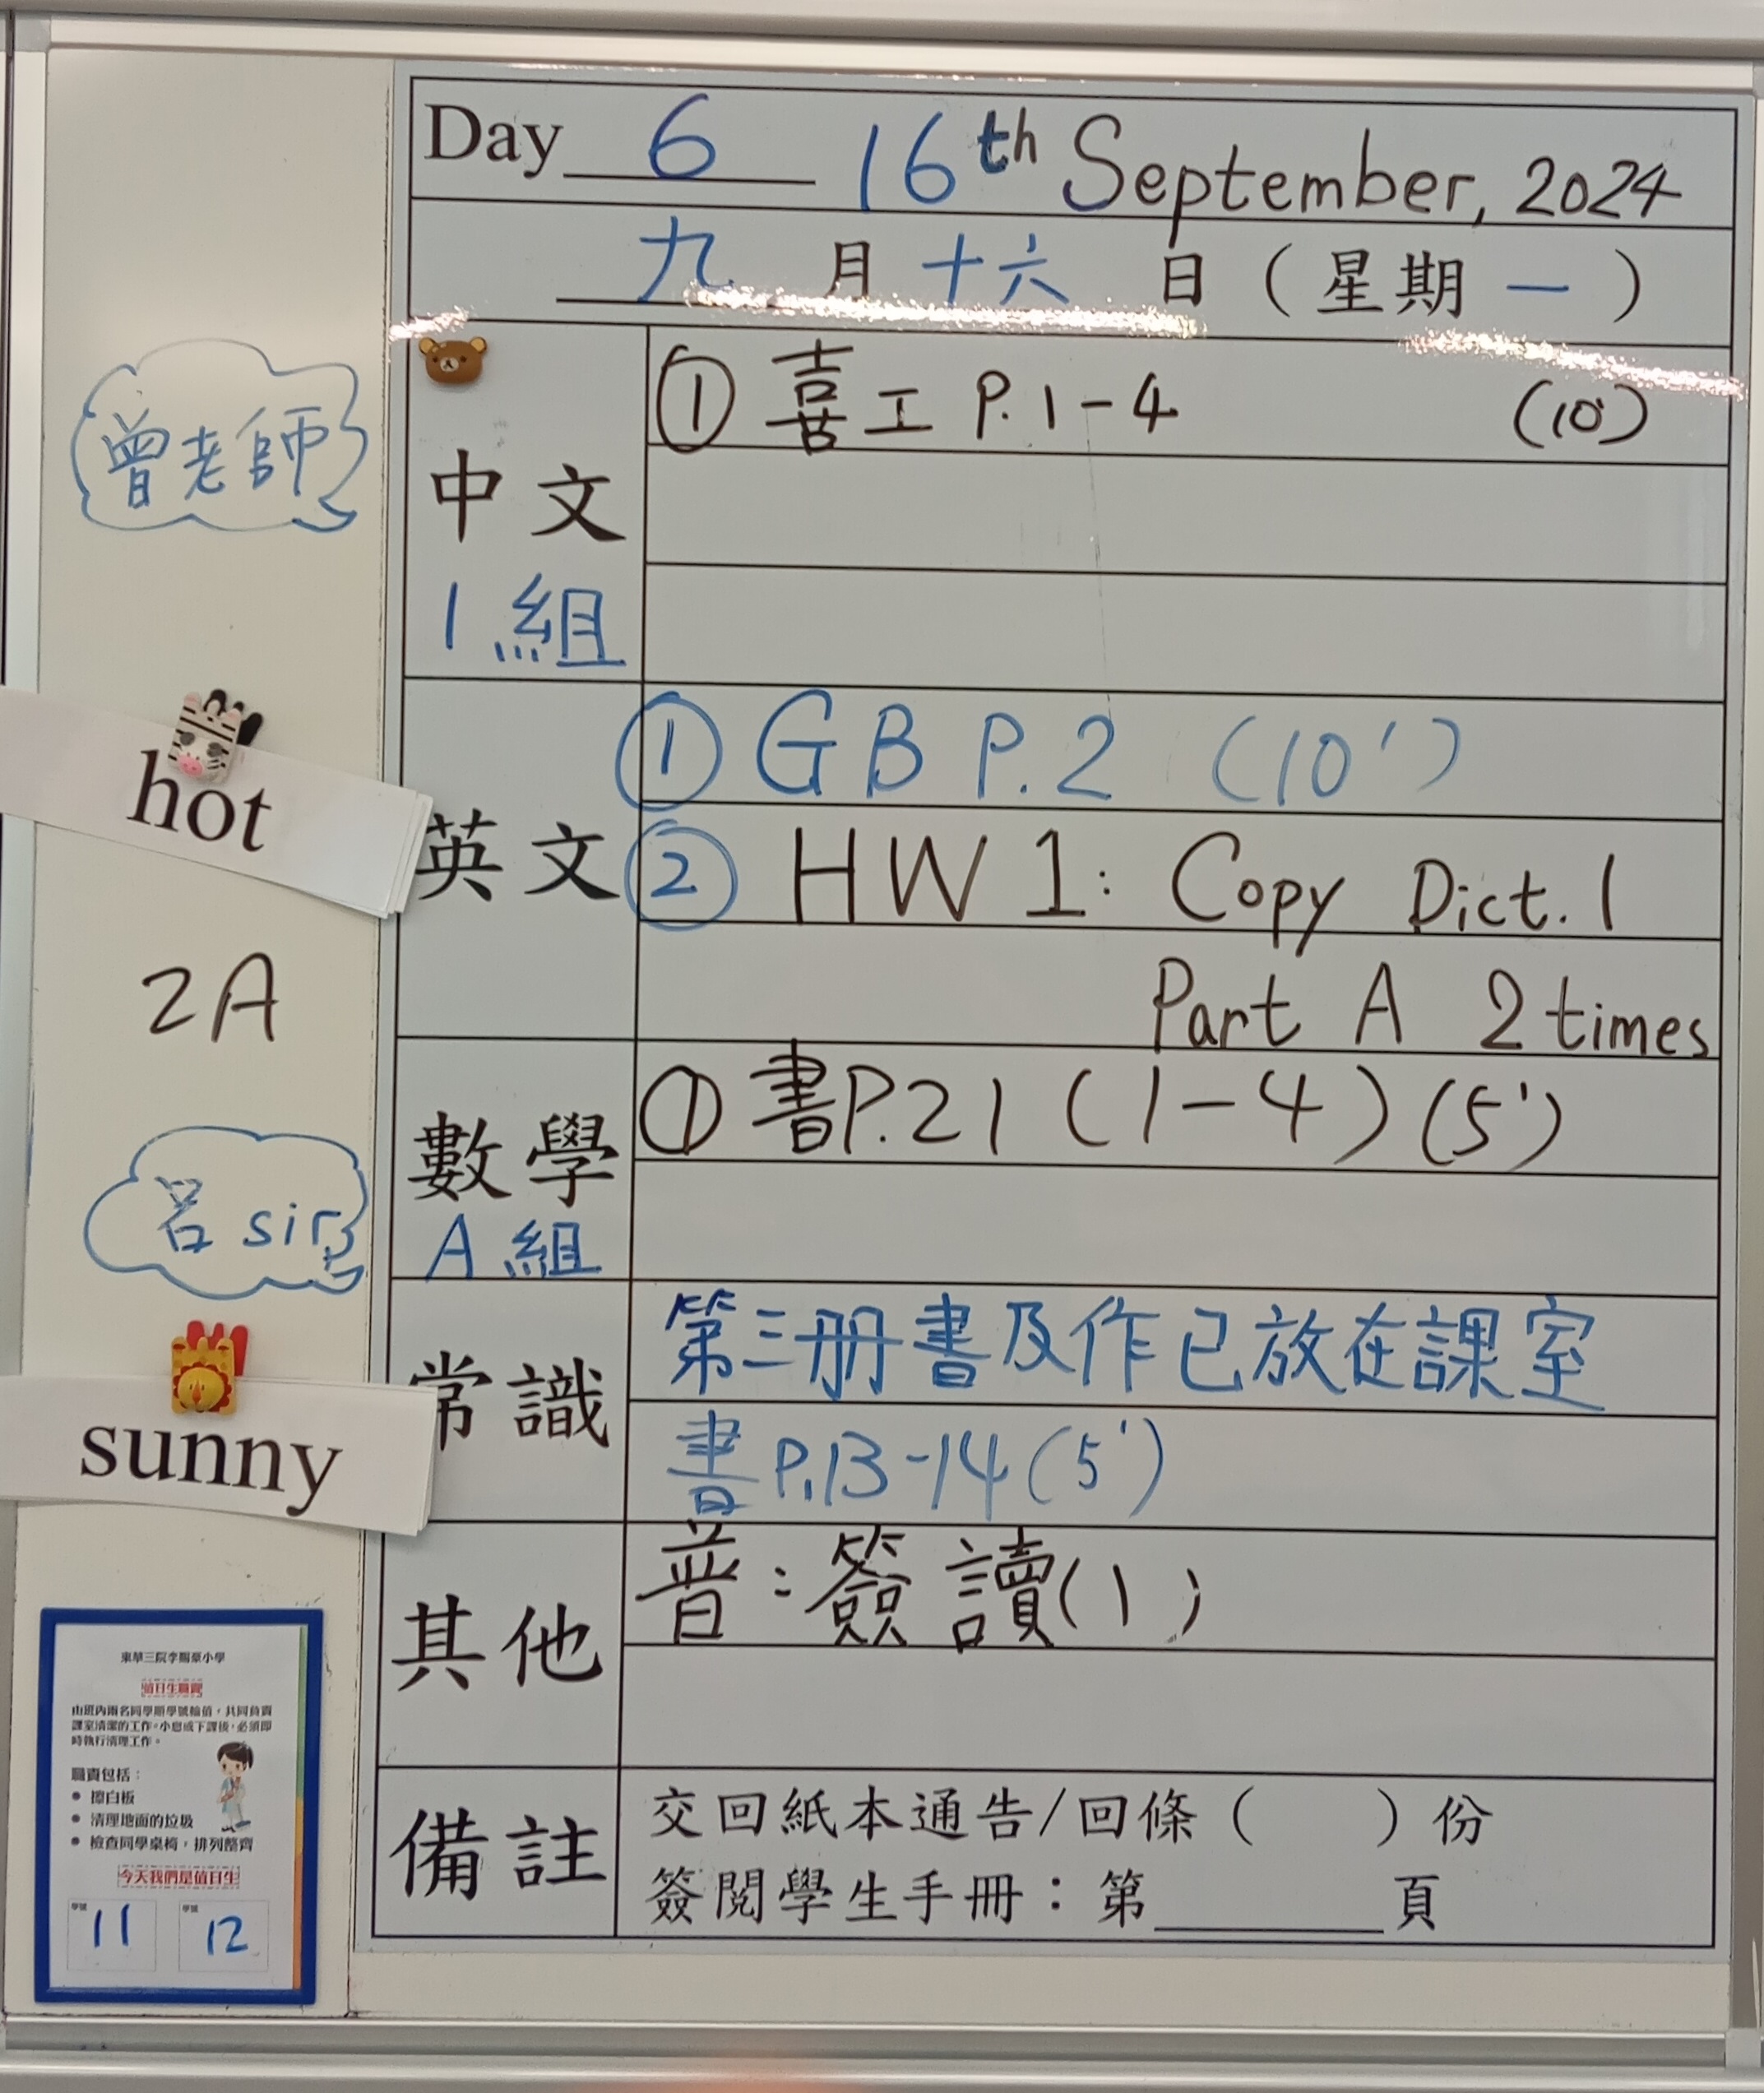 Day 6 16th September, 2024
九 月 十六 日 ( 星期 一 )
曾老師
中文
1組
① 喜工 P.1-4 (10')
hot
2A
英文
① GB P.2 (10')
② HW 1: Copy Dict. 1
Part A 2 times
呂 sir
數學
A組
① 書P.21 (1-4) (5')
sunny
常識
第三冊書及作已放在課室
書 P.13-14 (5')
其他
普：簽讀(1)
備註
交回紙本通告/回條 ( ) 份
簽閱學生手冊：第 頁
東華三院李賜豪小學
值日生職責
由班內兩名同學順學號輪值，共同負責
課室清潔的工作。小息或下課後，必須即
時執行清理工作。
職責包括：
● 擦白板
● 清理地面的垃圾
● 檢查同學桌椅，排列整齊
今天我們是值日生
學號 11
學號 12